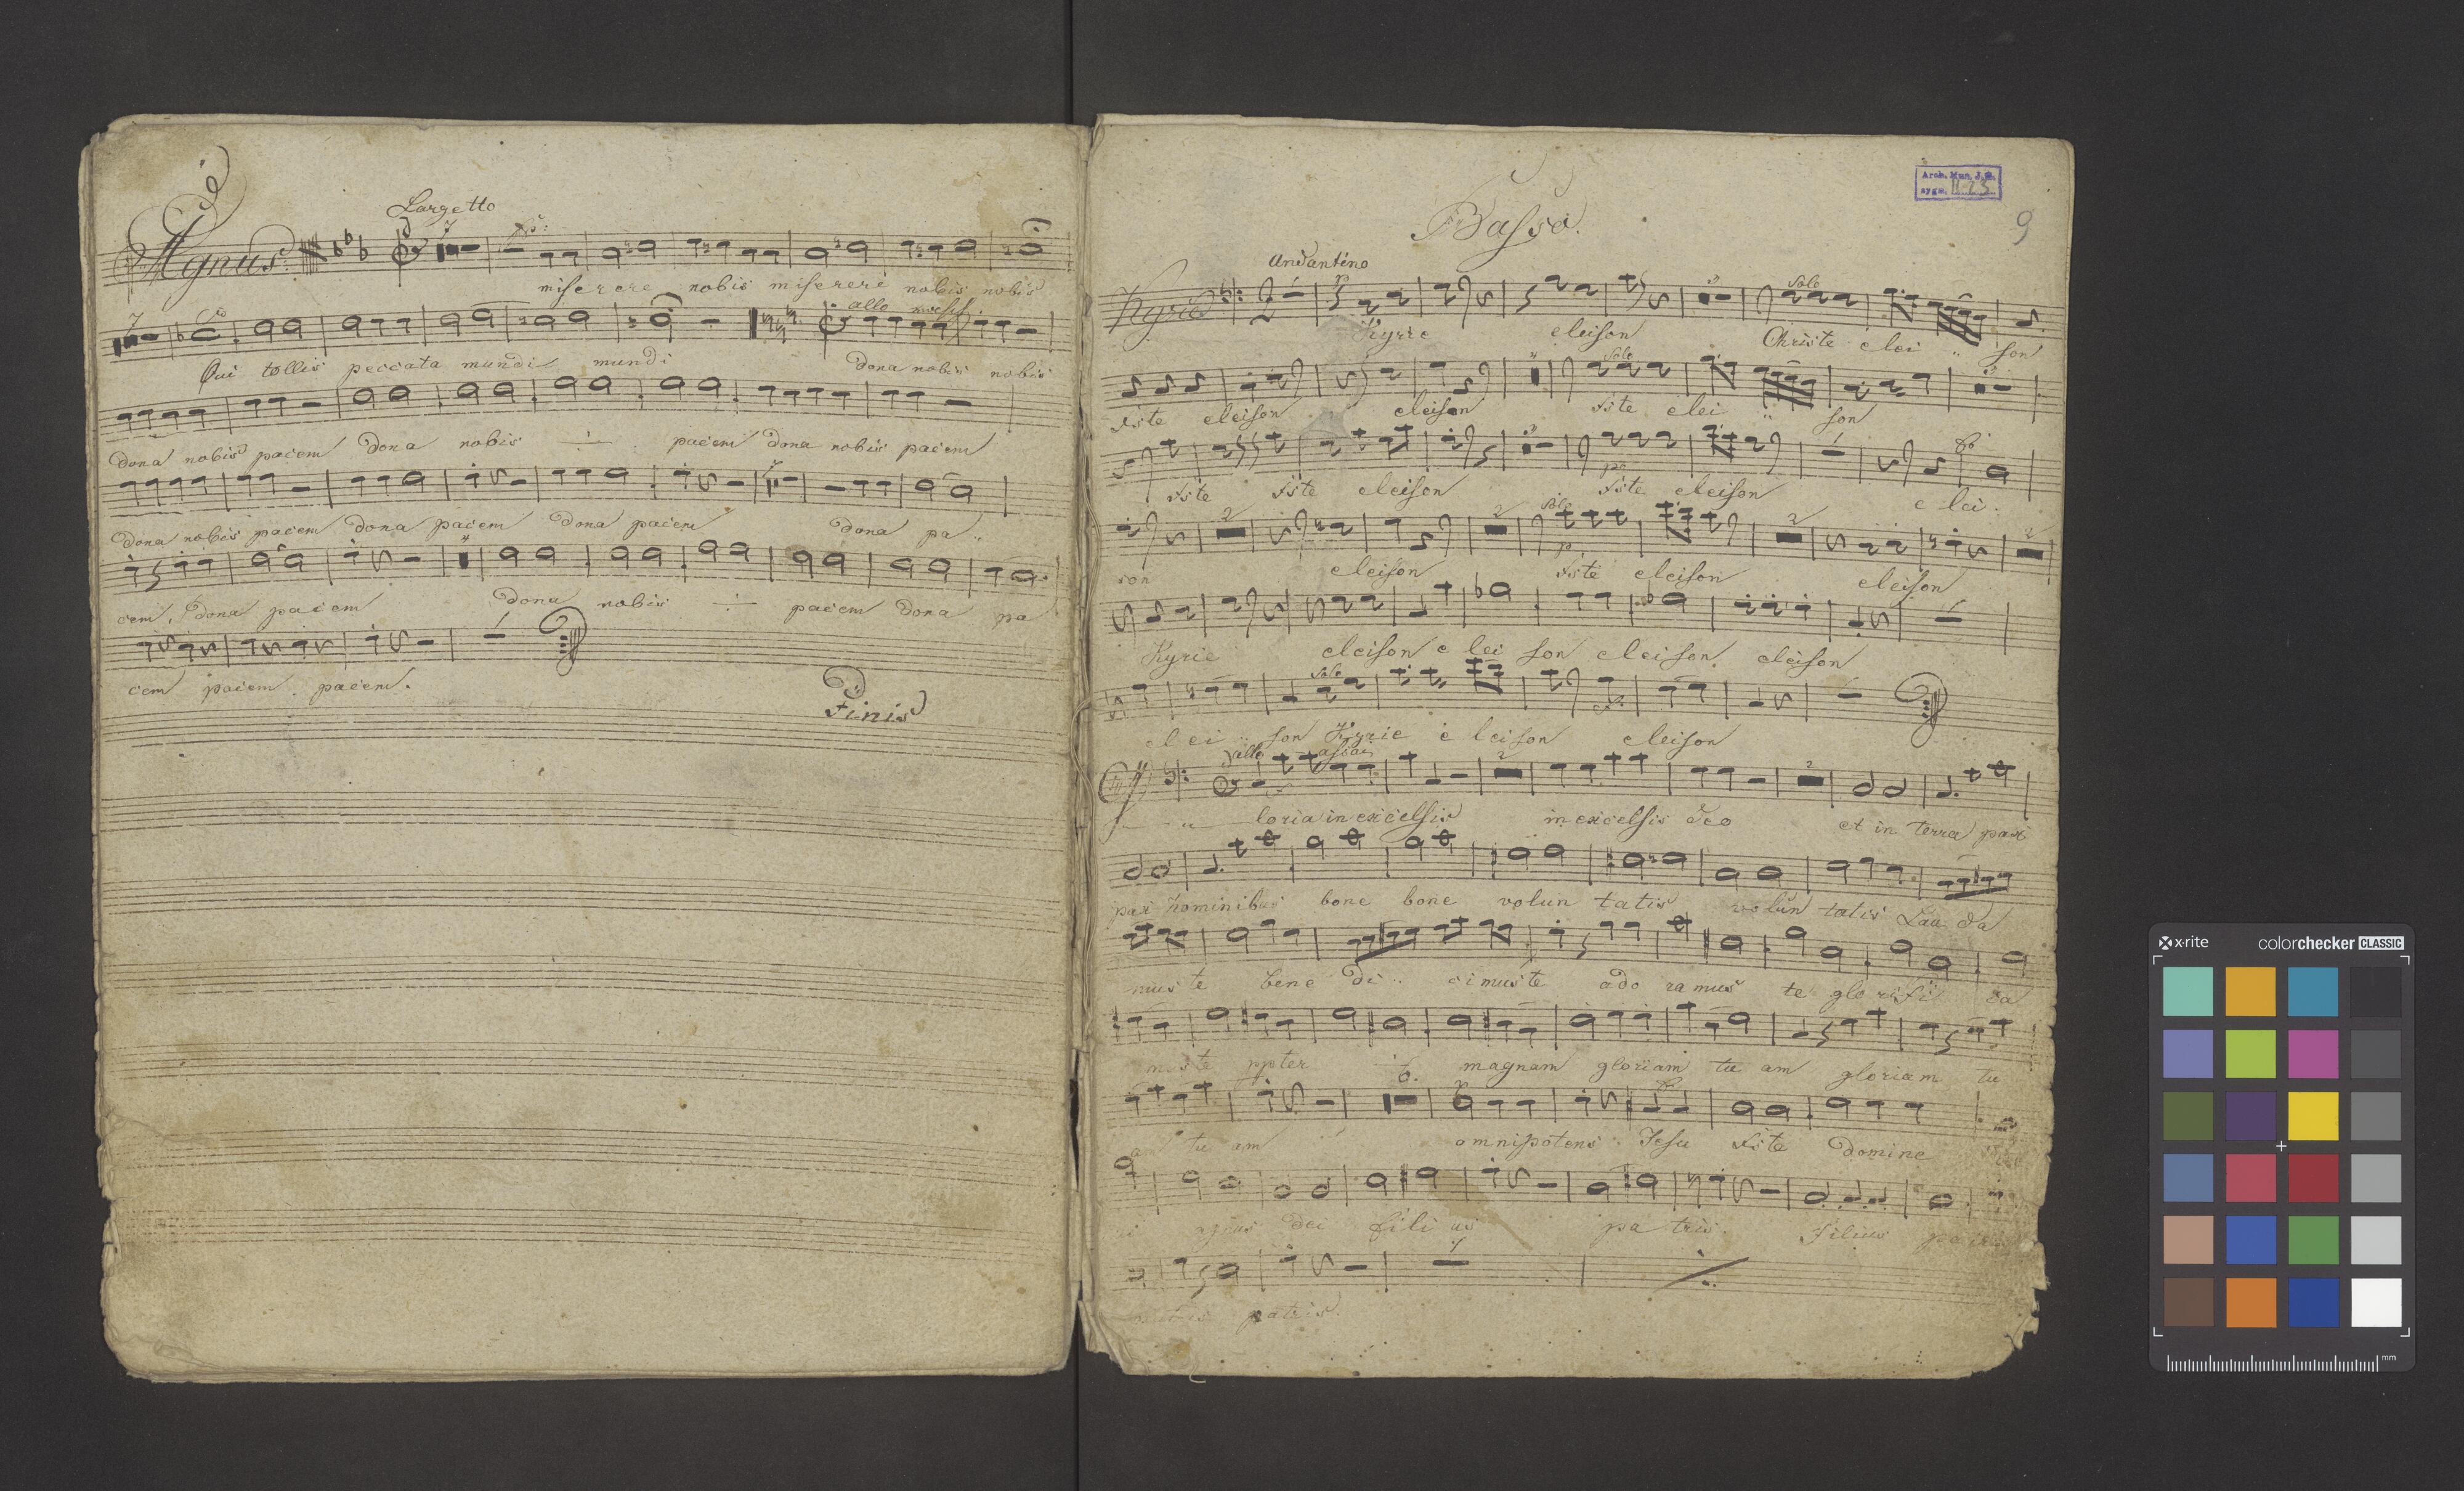 Largetto
Agnus
7
miserere nobis miserere nobis nobis
7 allo
Qui tollis peccata mundi mundi dona nobis nobis
dona nobis pacem dona nobis pacem dona nobis pacem
dona nobis pacem dona pacem dona pacem dona pa..
cem, dona pacem dona nobis pacem dona pa
cem pacem pacem.
Finis
Arch. Mus. J.G.
sygn.
9
Basso.
Andantino
Solo
Kyrie
Kyrie eleison Christe elei .. son
Solo
xste eleison eleison xste elei .. son
xste xste eleison xste eleison e lei.
2 Solo 2 2 2
son eleison xste eleison eleison
Kyrie eleison e lei son eleison eleison
Solo
elei .. son Kyrie e leison eleison
allo assai 2 2
loria in excelsis in excelsis deo et in terra pax
pax hominibus bone bone volun tatis volun tatis Lau da
muste bene di .. cimuste ado ramus te glorifi ca
muste ppter magnam gloriam tu am gloriam tu
6.
a tu am omnipotens Jesu xste domine
agnus dei fili us pa tris. filius patris
patris.
x-rite
colorchecker CLASSIC
mm